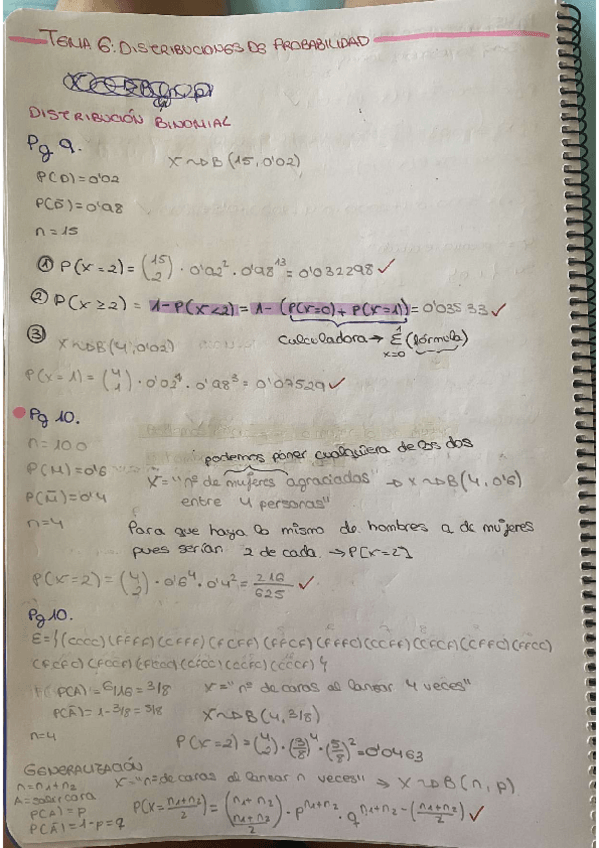 TEMA 6: DISTRIBUCIONES DE PROBABILIDAD
DISTRIBUCIÓN BINOMIAL
Pg 9.
X~DB(15,0'02)
P(D)=0'02
P(D̄)=0'98
n=15
① P(X=2) = (15 2) · 0'02² · 0'98¹³ = 0'032298 ✓
② P(X≥2) = 1-P(X<2) = 1-(P(X=0)+P(X=1)) = 0'03533 ✓
calculadora → Σ (fórmula)
1
x=0
③ X~DB(4,0'02)
P(X=1) = (4 1) · 0'02¹ · 0'98³ = 0'07529 ✓
Pg 10.
n=100
podemos poner cualquiera de los dos
P(M)=0'6
X="nº de mujeres agraciados" → X~DB(4,0'6)
P(M̄)=0'4
entre 4 personas"
n=4
Para que haya lo mismo de hombres a de mujeres
pues serían 2 de cada → P[X=2]
P(X=2) = (4 2) · 0'6⁴ · 0'4² = 216/625 ✓
Pg 10.
E={(CCCC)(FFFF)(CCFFF)(FCFF)(FFCF)(FFFC)(CCFF)(CCFCF)(CCFFC)(FFCC)
P(A)=6/16=3/8
X="nº de caras al lanzar 4 veces"
P(Ā)=1-3/8=5/8
X~DB(4,3/8)
n=4
P(X=2)=(4 2)·(3/8)⁴·(5/8)²=0'0463
GENERALIZACIÓN
n=n1+n2
X="nº de caras al lanzar n veces" → X~DB(n,p)
A=salir cara
P(A)=p
P(X=n1+n2/2)=(n1+n2 n1+n2/2)·p^n1+n2·q^n1+n2-(n1+n2/2) ✓
P(Ā)=1-p=q